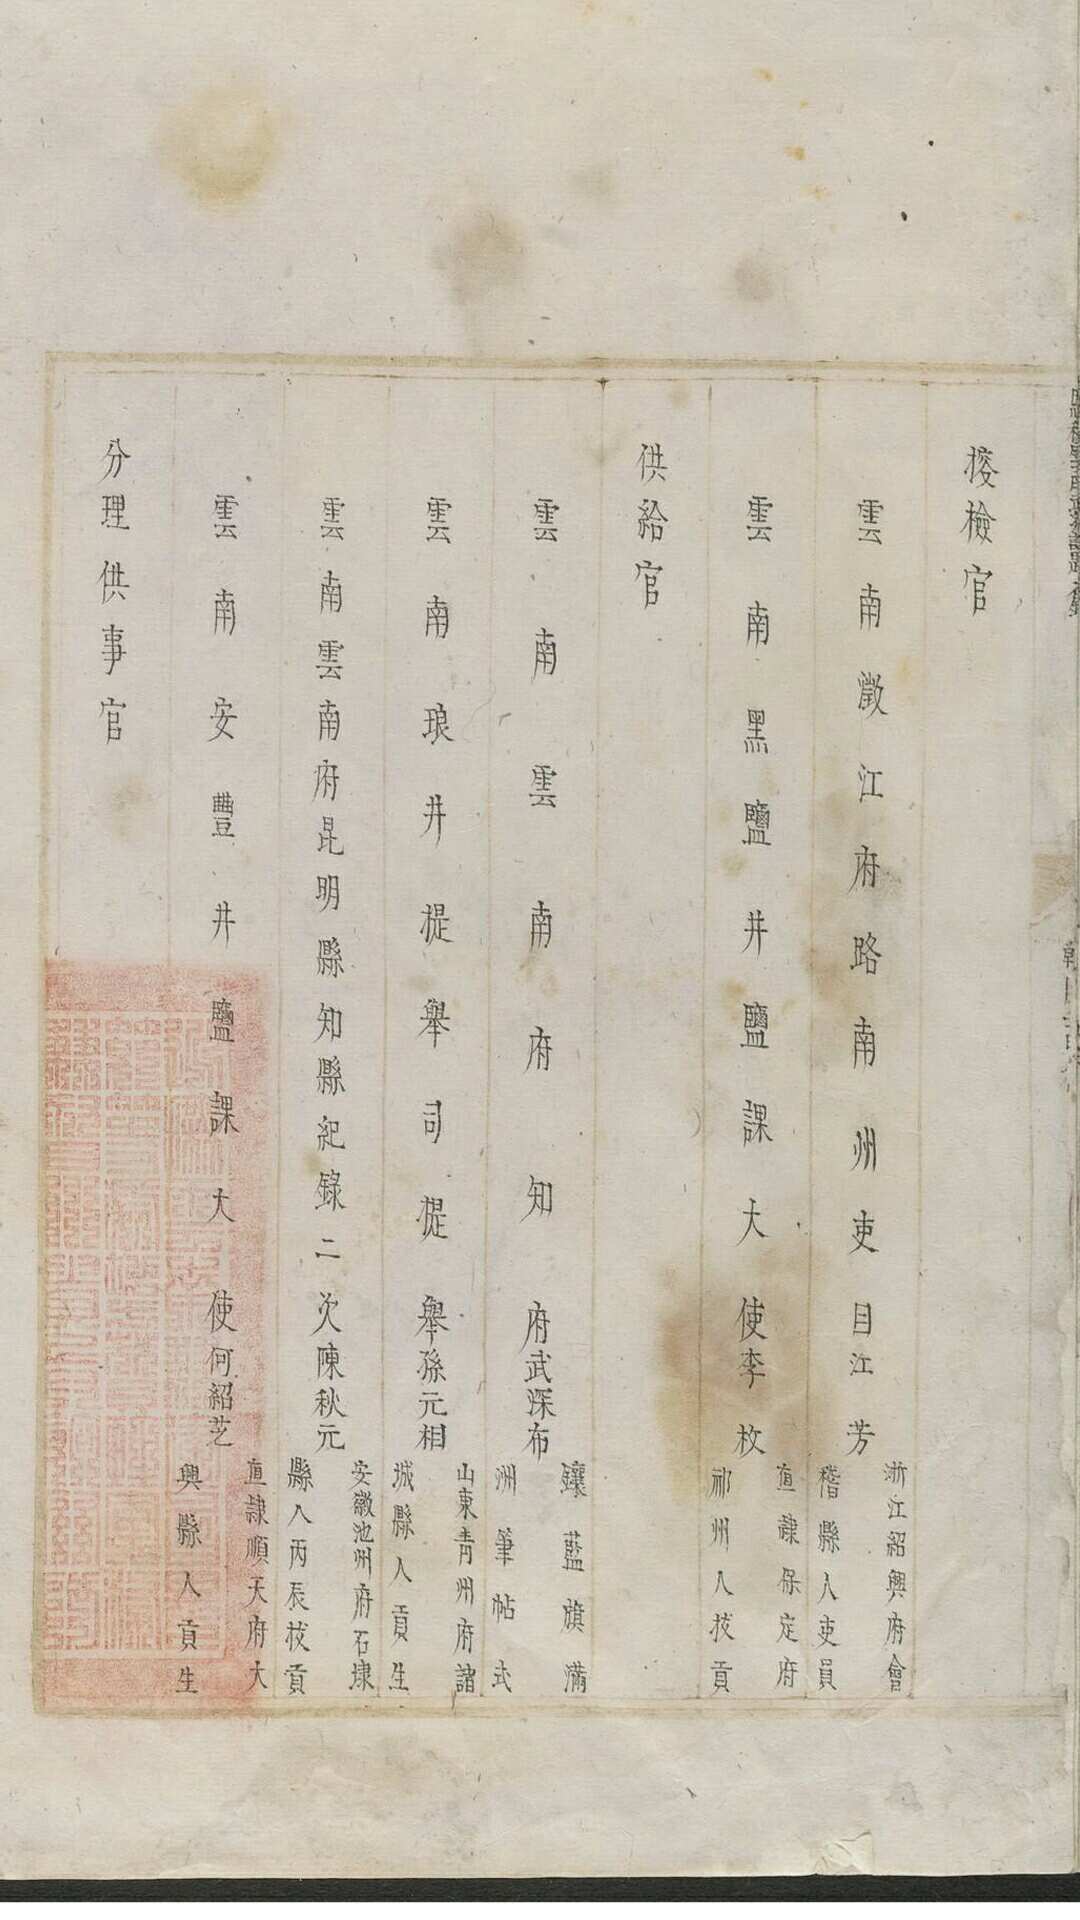 搜檢官
雲南澂江府路南州吏目江芳
浙江紹興府會
稽縣人吏員
雲南黑鹽井鹽課大使李枚
直隸保定府
祁州人拔貢
供給官
雲南雲南府知府武深布
鑲藍旗滿
洲筆帖式
雲南琅井提舉司提舉孫元相
山東青州府諸
城縣人貢生
雲南雲南府昆明縣知縣紀錄二次陳秋元
安徽池州府石埭
縣人丙辰拔貢
雲南安豐井鹽課大使何紹芝
直隸順天府大
興縣人貢生
分理供事官